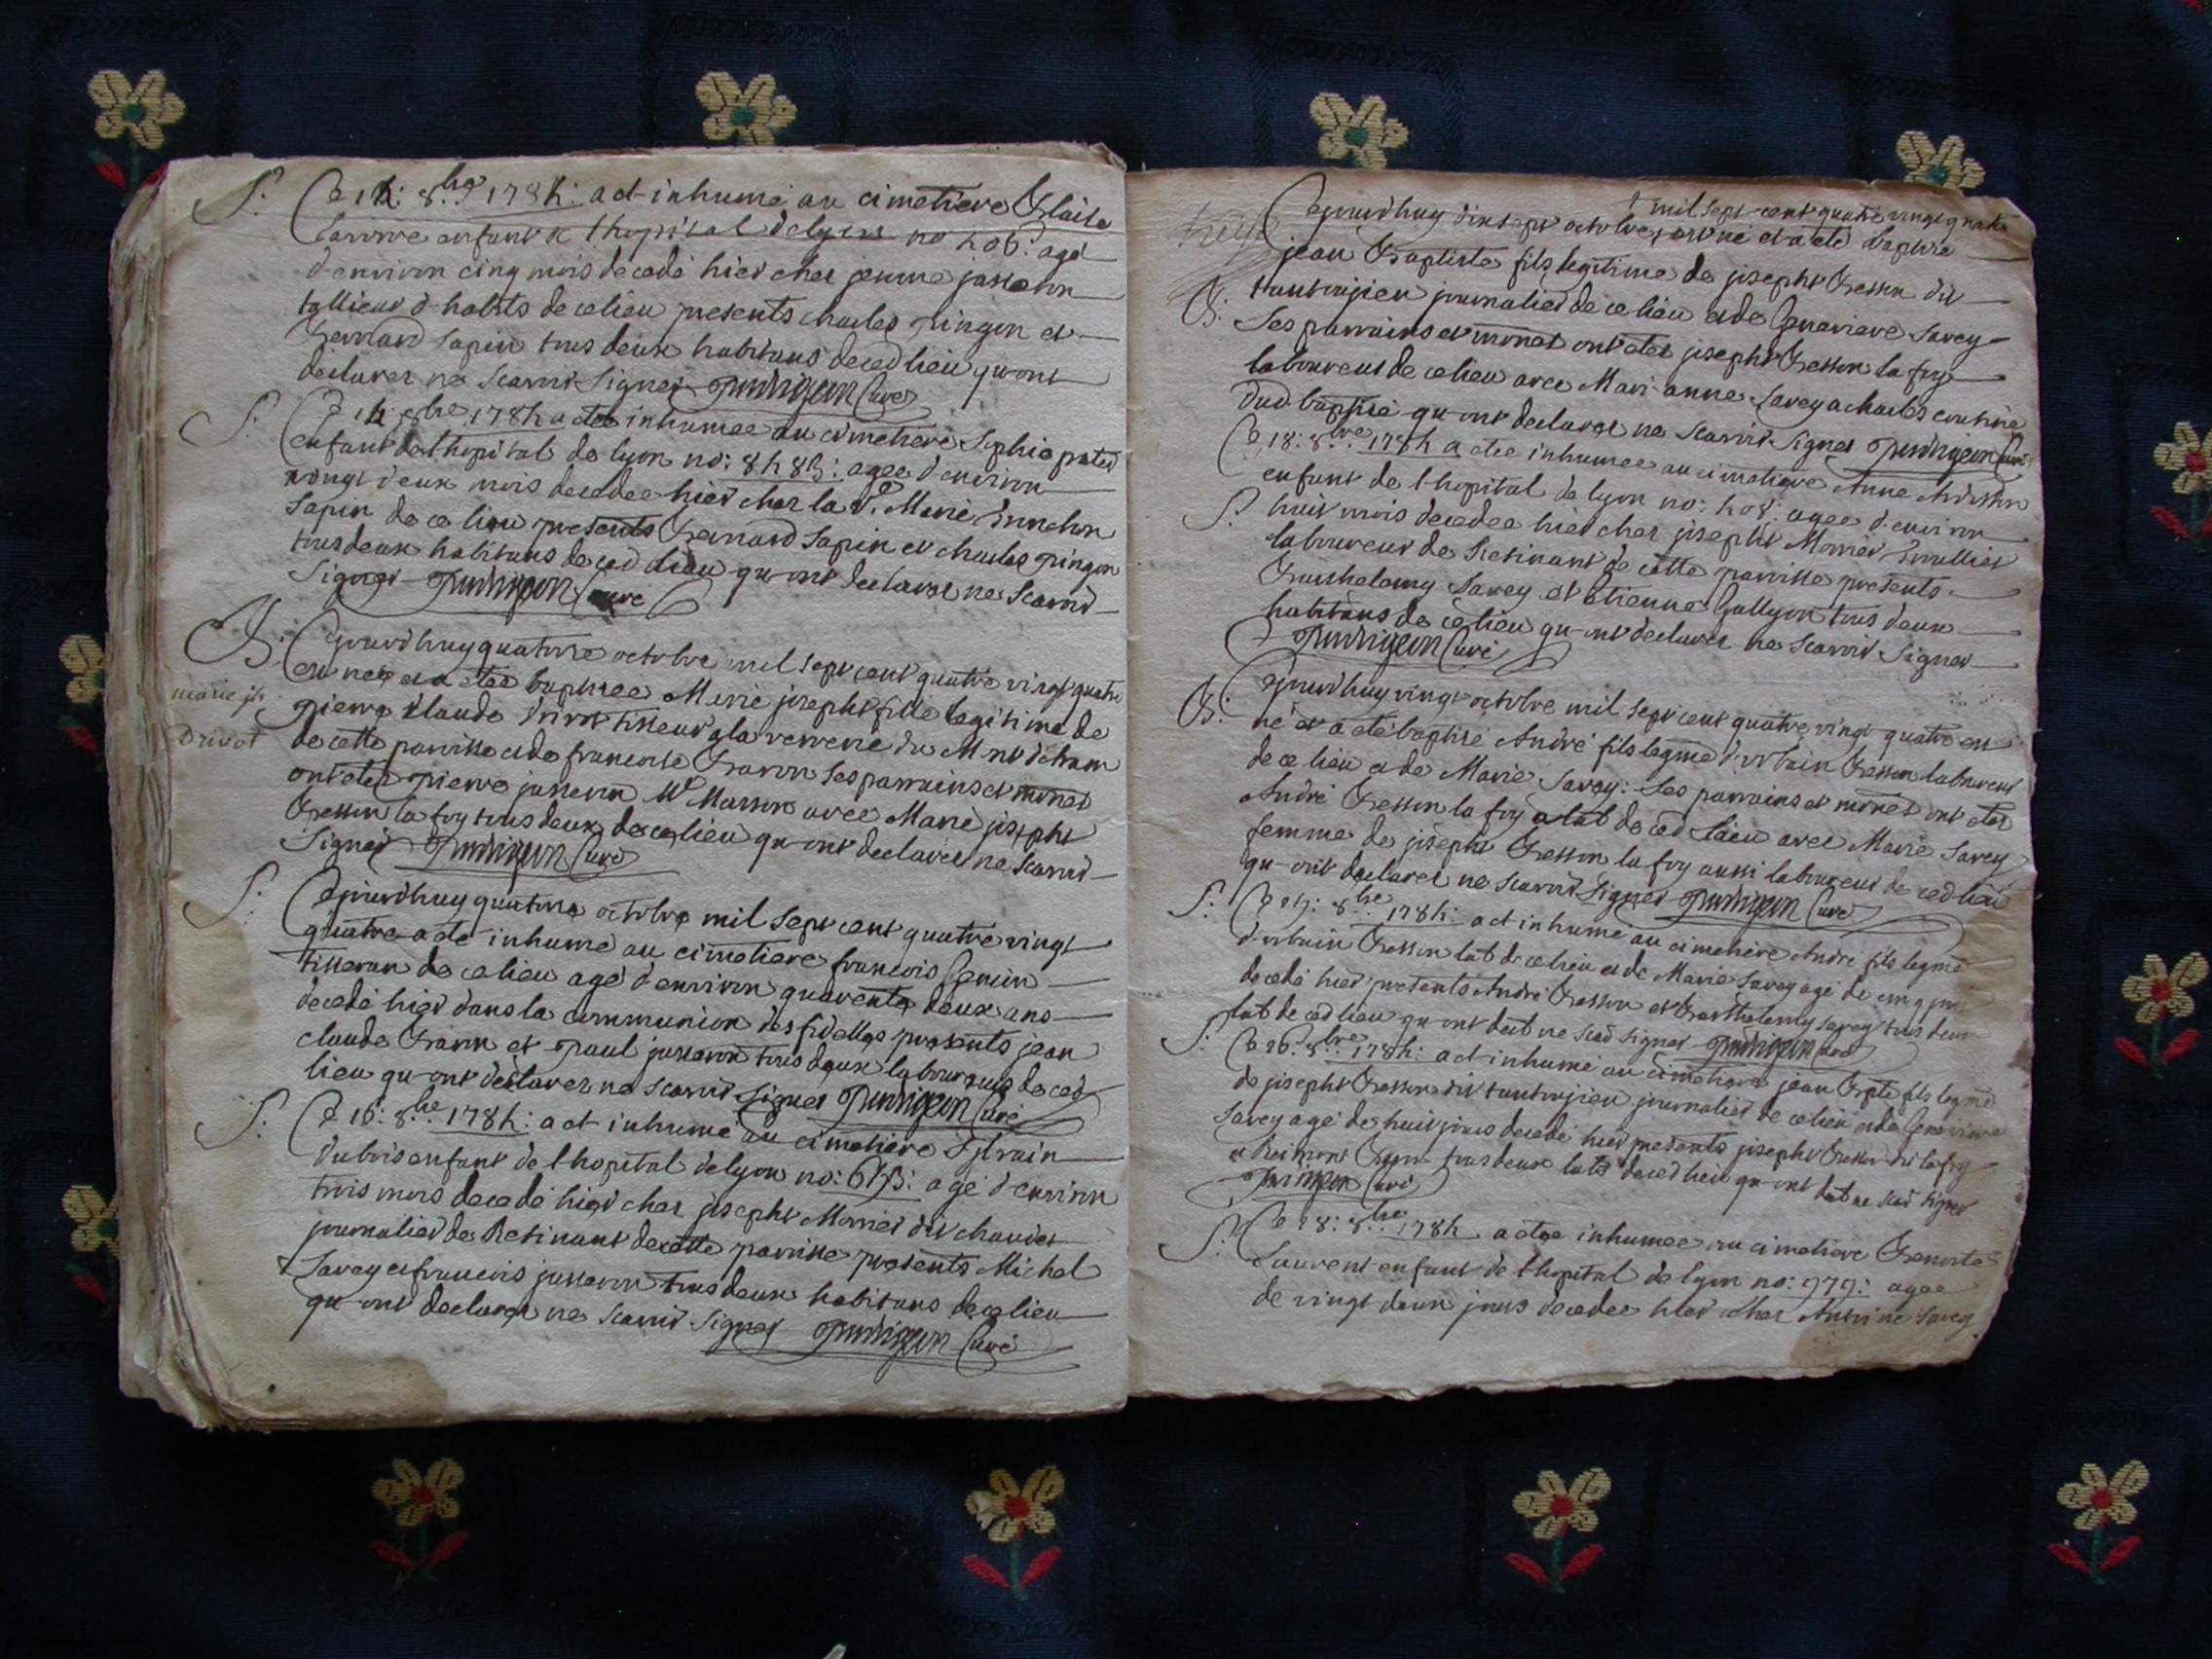 S. Ce 14: 8.bre 1784: a et inhumé au cimetiere Blaise
enfant de l'hopital de lyon no 406: agé
d'environ cinq mois decedé hier chez
tallieur d'habits de ce lieu presents charles pingon et
Bernard Sapin tous deux habitans de ced lieu qu ont
declarer ne scavoir signer curé
S. Ce 14 8bre 1784 a etee inhumee au cimetiere Sophie
enfant de l'hopital de lyon no: 8485: agee d'environ
vingt deux mois decedee hier chez la Ve. Marie
Sapin de ce lieu presents Bernard Sapin et charles pingon
tous deux habitans de ced lieu qu-ont declarer ne scavoir
signer curé
B. Cejourdhuy quatorse octobre mil sept cent quatre vingt quatre
est nee et a etee baptisee Marie joseph fille legitime de
marie jh
pierre Claude Drivot tisseur a la verrerie du
Drivot
de cette parroisse et de francoise Baron Ses parrains et
ont etes pierre jusseron Mr Masson avec Marie joseph
Besson la foy tous deux de ce lieu qu-ont declarer ne scavoir
signer curé
S. Cejourdhuy quatorse octobre mil sept cent quatre vingt
quatre a eté inhumé au cimetiere francois Genin
tisseran de ce lieu agé d'environ quarente deux ans
decedé hier dans la communion des fidelles presents jean
claude Baron et paul jusseron tous deux laboureurs de ced
lieu qu-ont declarer ne scavoir signer curé
S. Ce 16: 8.bre 1784: a et inhumé au cimetiere
dubois enfant de l'hopital de lyon no: agé d'environ
trois mois decedé hier chez joseph Monier dit
journalier de Resinant de cette parroisse presents Michel
Savey et francois jusseron tous deux habitans de ce lieu
qu-ont declarer ne scavoir signer curé
mil sept-cent quatre vingt quatre
Cejourdhuy dix sept octobre est né et a eté baptisé
jean Baptiste fils legitime de joseph Besson dit
B. journalier de ce lieu et de Genevieve Savey
Ses parrains et ont etes joseph Besson la foy
laboureur de ce lieu avec Mari-anne Savey
dud. baptisé qu-ont declarer ne scavoir signer curé
Ce 18: 8.bre 1784 a etee inhumee au cimetiere Anne
enfant de l'hopital de lyon no: 408: agee d'environ
S. huit mois decedee hier chez joseph Monier
laboureur de Resinant de cette parroisse presents
Barthelemy Savey et etienne Gullyon tous deux
habitans de ce lieu qu-ont declarer ne scavoir signer
curé
B. Cejourdhuy vingt octobre mil sept cent quatre vingt quatre est
né et a eté baptisé André fils legme d'urbain Besson laboureur
de ce lieu et de Marie Savey: Ses parrains et ont etes
André Besson la foy lab de ced lieu avec Marie Savey
femme de joseph Besson la foy aussi laboureur de ced lieu
qu-ont declarer ne scavoir signer curé
S. Ce 8.bre 1784: a et inhumé au cimetiere André fils legme
d'urbain Besson lab de ce lieu et de Marie Savey agé de cinq jours
decedé hier presents André Besson et Barthelemy Savey tous deux
lab de ced lieu qu-ont ne signer curé
S. Ce 26: 8.bre 1784: a et inhumé au cimetiere jean Bpte fils legme
de joseph Besson dit journalier de ce lieu et de Genevieve
Savey agé de huit jours decedé hier presents joseph Besson dit la foy
et tous deux labs de ced lieu qu-ont ne signer
curé
S. Ce 28: 8.bre 1784 a etee inhumee au cimetiere Benoite
Laurent enfant de l'hopital de lyon no: 979: agee
de vingt deux jours decedee hier chez Antoine Savey